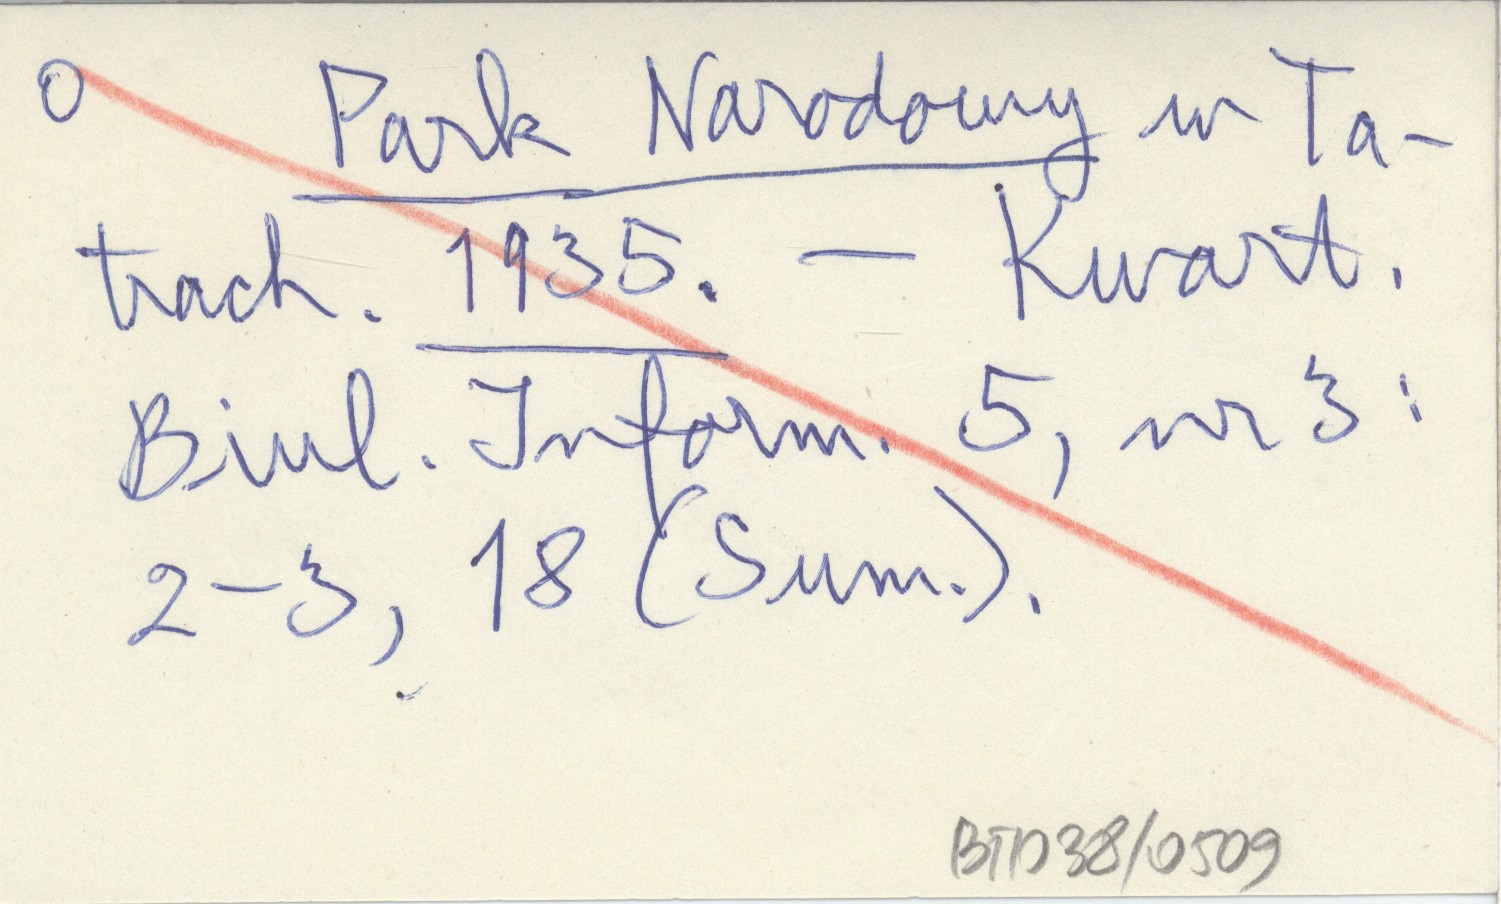 O Park Narodowy w Ta-
trach. 1935. — Kwart.
Biul. Inform. 5, nr 3:
2-3, 18 (Sum.).
BTD38/0509